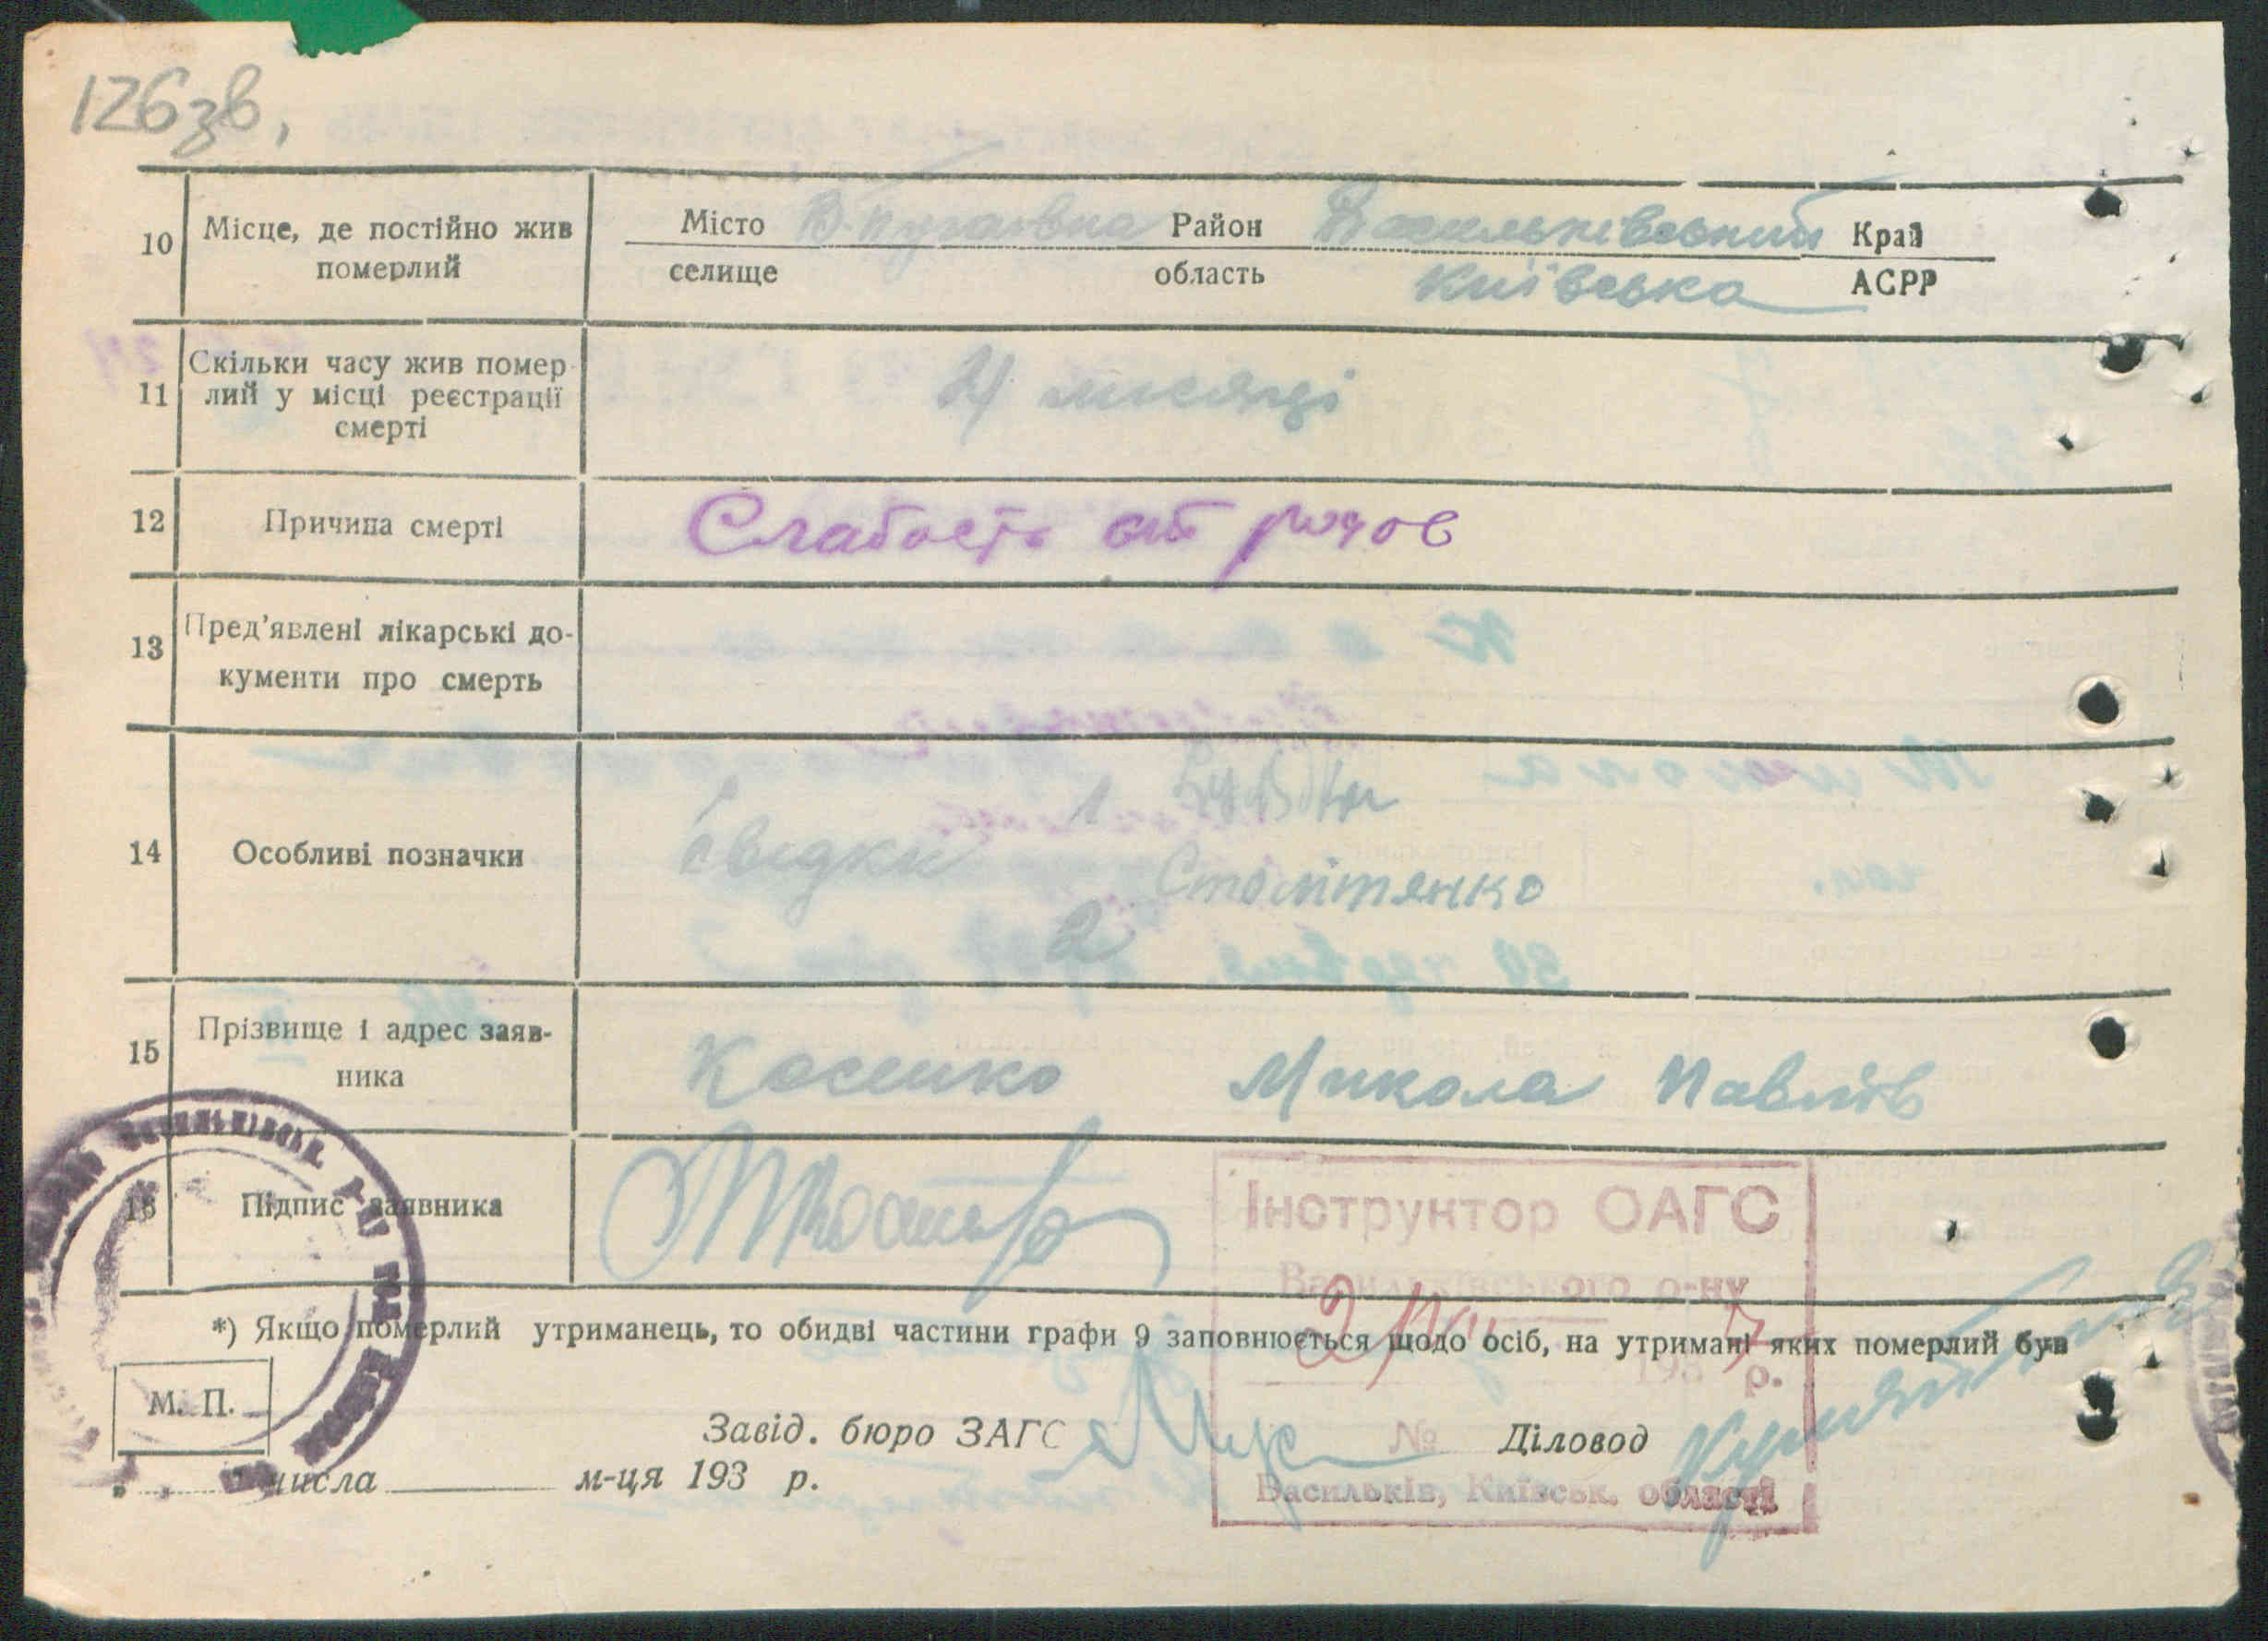 126зв,
10 Місце, де постійно жив померлий
Місто В. Район Васильківський Край
селище область Київська АСРР
11 Скільки часу жив помер-
лий у місці реєстрації
смерті
4 місяці
12 Причина смерті Слабость от родов
13 Пред'явлені лікарські до-
кументи про смерть
14 Особливі позначки
Свідки 1
Столітянко
2
15 Прізвище і адрес заяв-
ника
Косенко Микола Павлів
16 Підпис заявника
Інструктор ОАГС
Васильківського р-ну
193 7 р.
№
Васильків, Київськ. області
*) Якщо померлий утриманець, то обидві частини графи 9 заповнюється щодо осіб, на утримані яких померлий був
М. П.
Завід. бюро ЗАГС Діловод
числа м-ця 193 р.